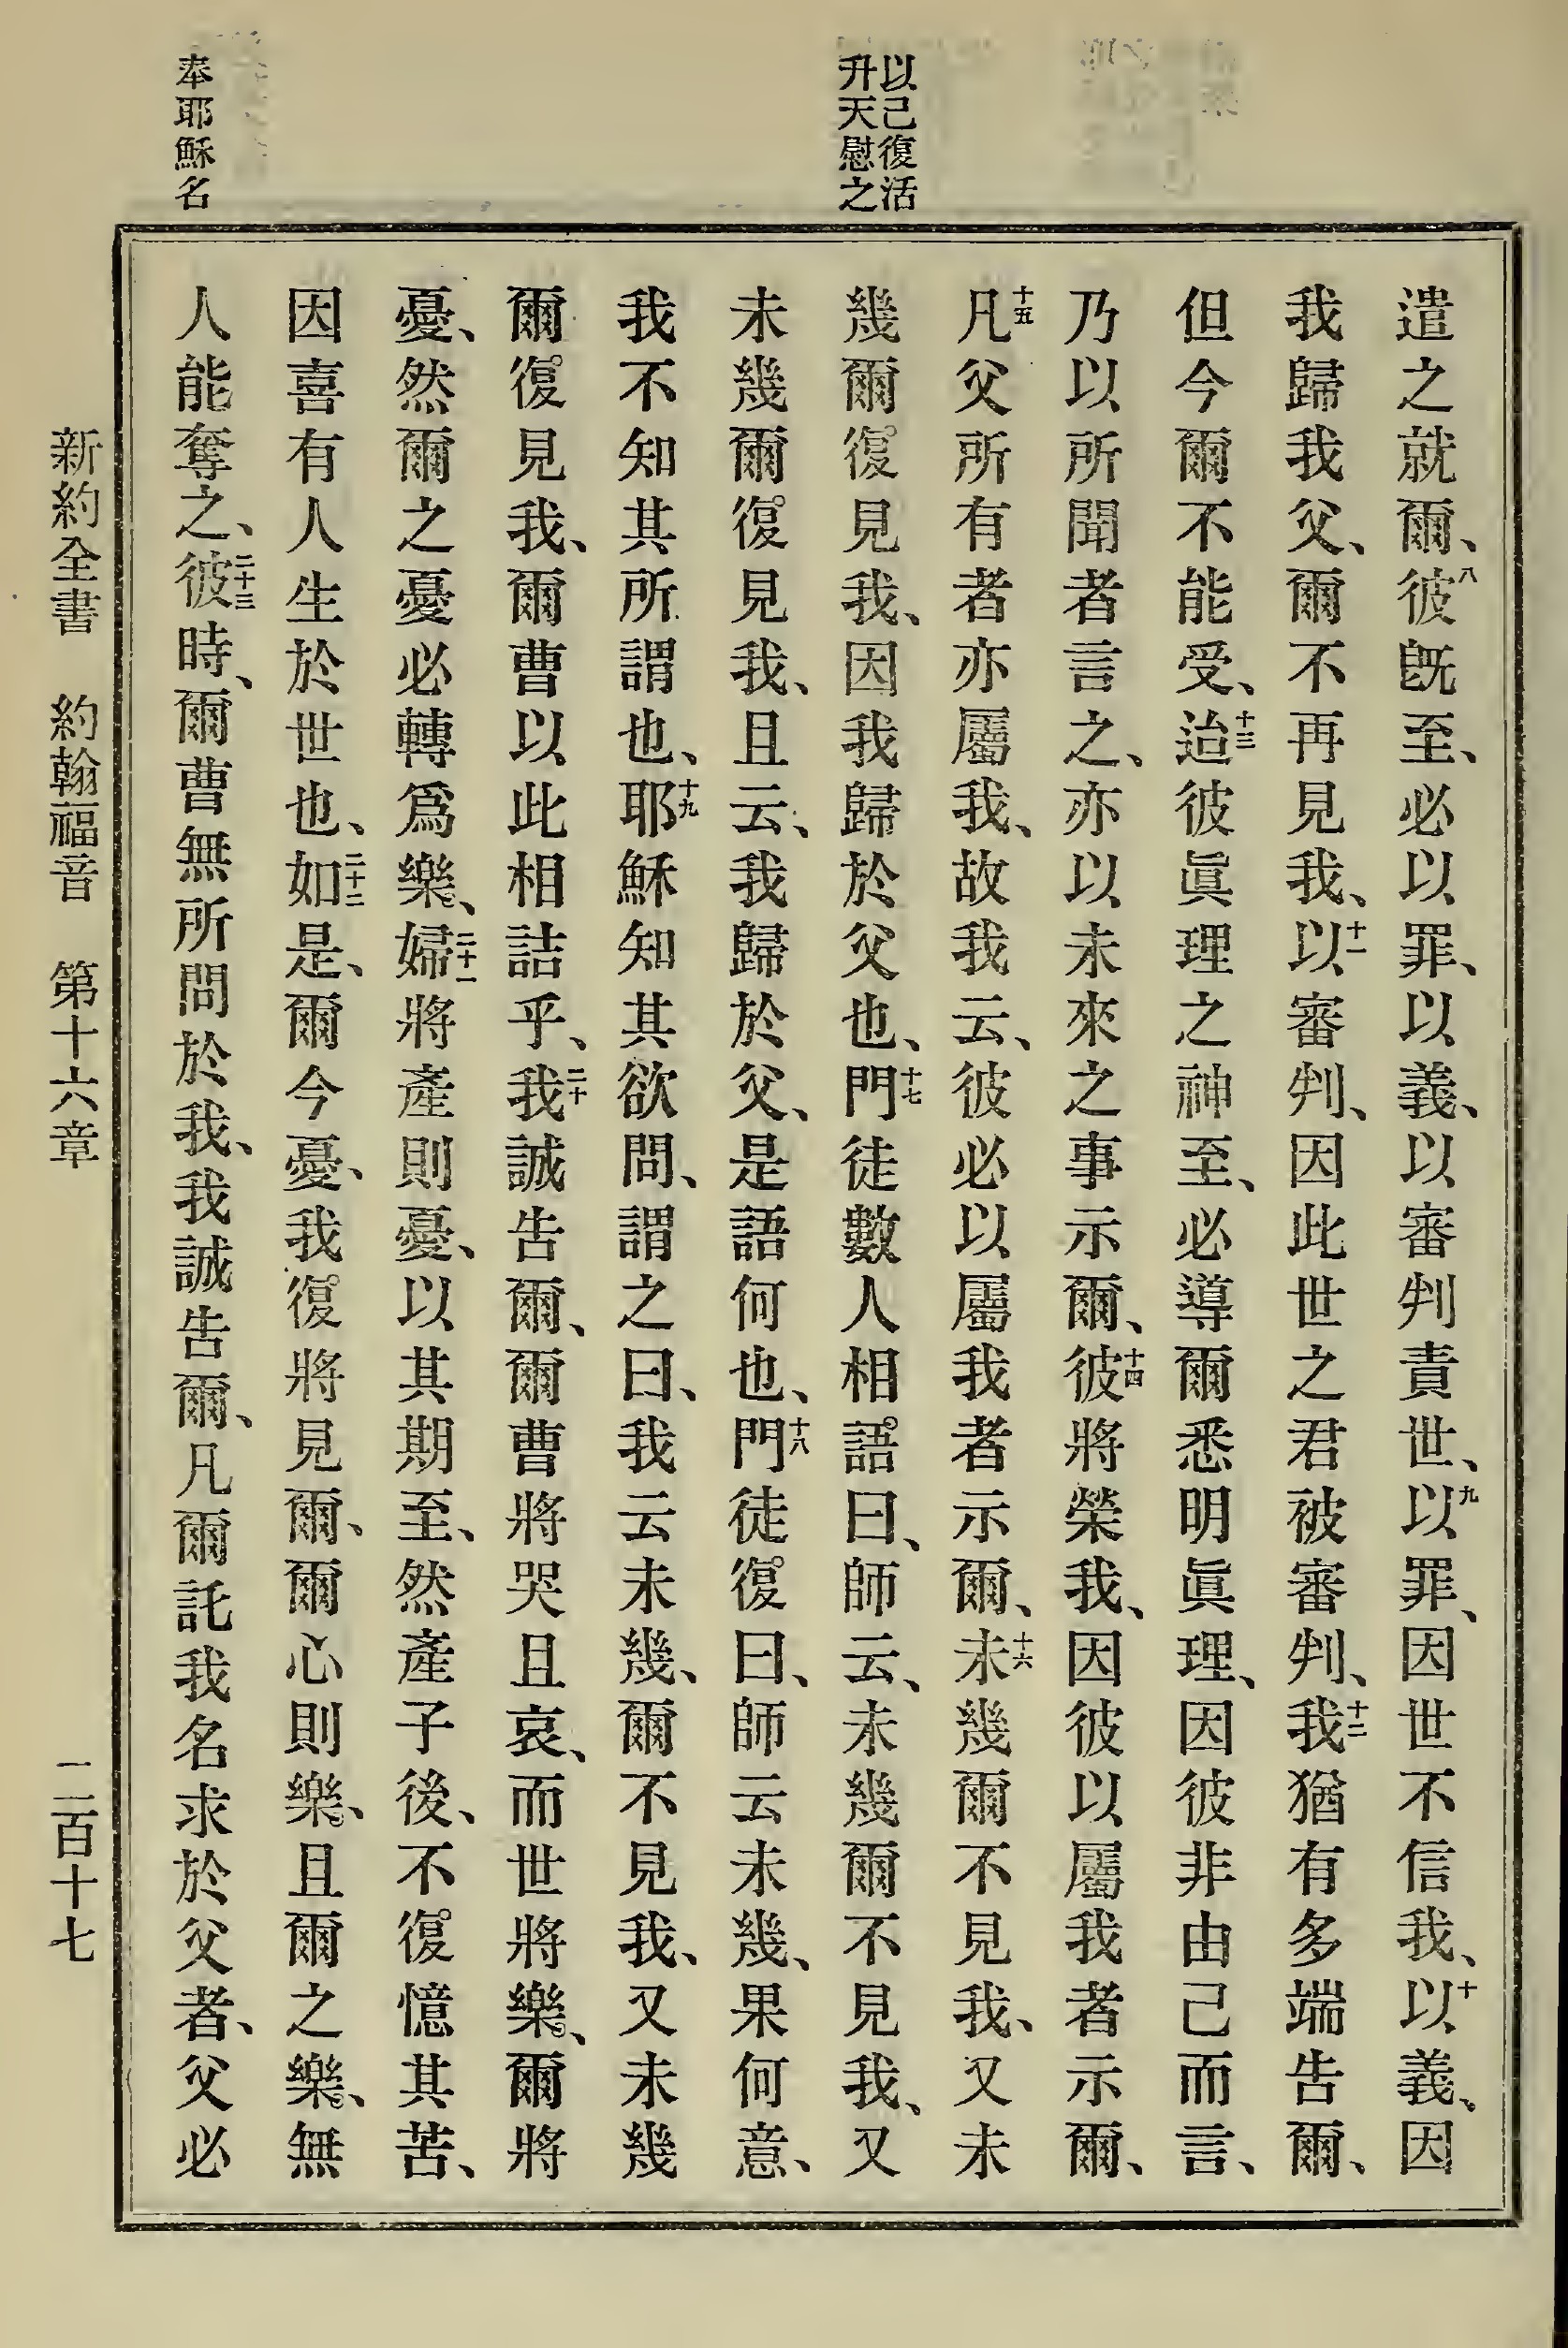 以己復活
升天慰之
奉耶穌名
遣之就爾、八彼旣至、必以罪、以義、以審判責世、九以罪、因世不信我、十以義、因
我歸我父、爾不再見我、十一以審判、因此世之君被審判、十二我猶有多端告爾、
但今爾不能受、十三迨彼眞理之神至、必導爾悉明眞理、因彼非由己而言、
乃以所聞者言之、亦以未來之事示爾、十四彼將榮我、因彼以屬我者示爾、
十五凡父所有者亦屬我、故我云、彼必以屬我者示爾、十六未幾爾不見我、又未
幾爾復見我、因我歸於父也、十七門徒數人相語曰、師云、未幾爾不見我、又
未幾爾復見我、且云、我歸於父、是語何也、十八門徒復曰、師云未幾、果何意、
我不知其所謂也、十九耶穌知其欲問、謂之曰、我云未幾、爾不見我、又未幾
爾復見我、爾曹以此相詰乎、二十我誠告爾、爾曹將哭且哀、而世將樂、爾將
憂、然爾之憂必轉爲樂、二十一婦將產則憂、以其期至、然產子後、不復憶其苦、
因喜有人生於世也、二十二如是、爾今憂、我復將見爾、爾心則樂、且爾之樂、無
人能奪之、二十三彼時、爾曹無所問於我、我誠告爾、凡爾託我名求於父者、父必
新約全書 約翰福音 第十六章 一二百十七